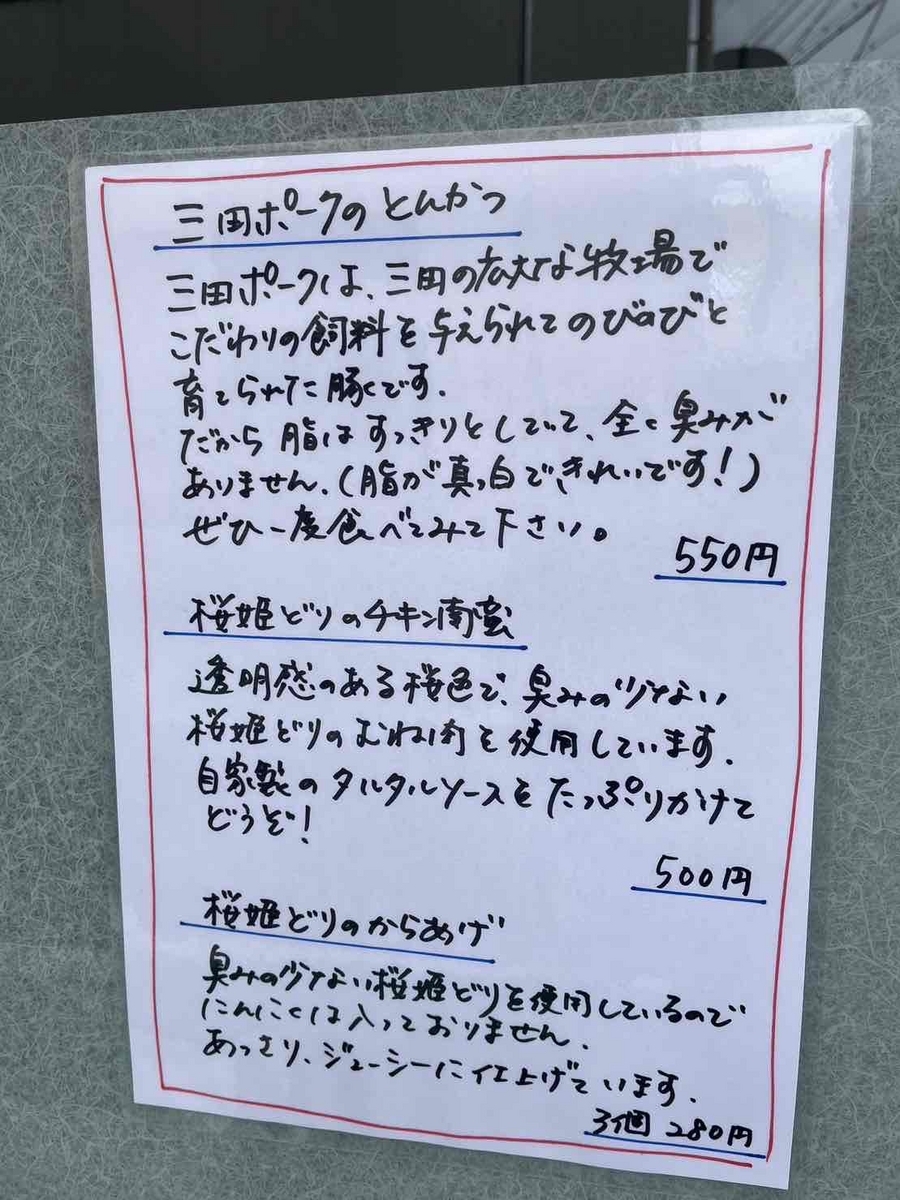 三田ポークのとんかつ
三田ポークは、三田の広大な牧場で
こだわりの飼料を与えられてのびのびと
育てられた豚くです.
だから脂はすっきりとしていて、全く臭みが
ありません.(脂が真っ白できれいです!)
ぜひ一度食べてみて下さい。
550円
桜姫どりのチキン南蛮
透明感のある桜色で、臭みの少ない
桜姫どりのむね肉を使用しています.
自家製のタルタルソースをたっぷりかけて
どうぞ!
500円
桜姫どりのからあげ
臭みの少ない桜姫どりを使用しているので
にんにくは入っておりません.
あっさり、ジューシーに仕上げています.
3個 280円